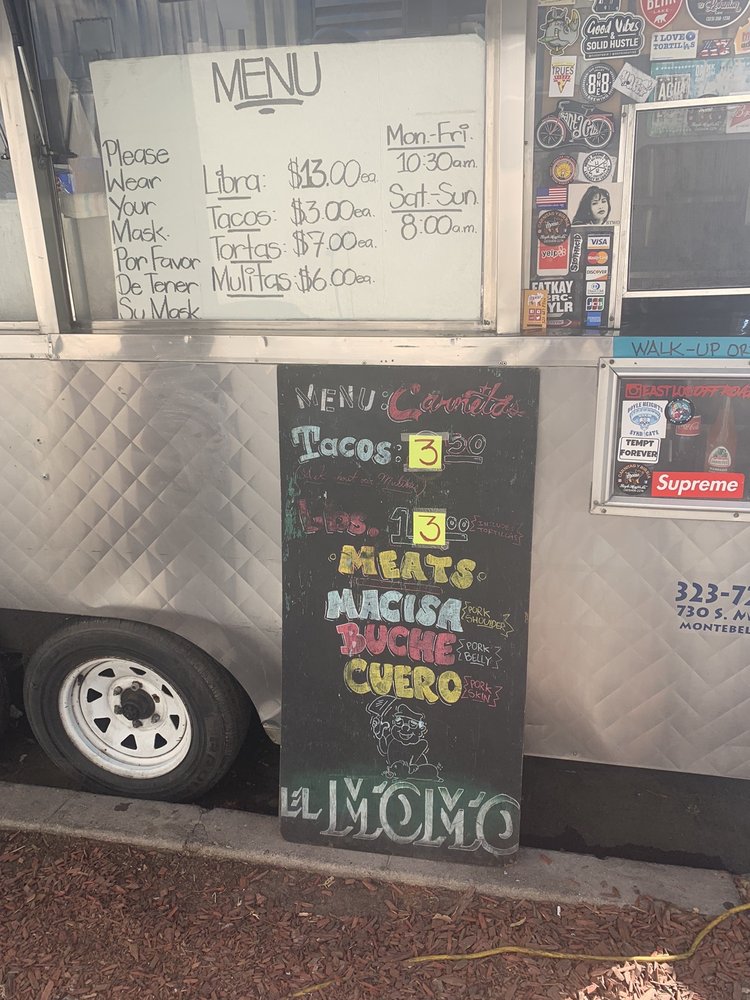 MENU
Please
Wear
Your
Mask.
Por Favor
De Tener
Su Mask
Libra: $13.00ea.
Tacos: $3.00ea.
Tortas: $7.00ea.
Mulitas: $6.00ea.
Mon.-Fri.
10:30a.m.
Sat.-Sun.
8:00a.m.
Good Vibes
&
SOLID HUSTLE
I LOVE
TORTILLAS
TRUE5
8ONE8
yelp
VISA
MasterCard
DISCOVER
JCB
WALK-UP OR
EAST LOS
BOYLE HEIGHTS
TEMPT
FOREVER
Supreme
323-7
730 S.
MONTEBEL
MENU: Carnitas
Tacos: 3 50
Lbs. 1 3 00 {INCLUDES TORTILLAS}
MEATS
MACISA {PORK SHOULDER}
BUCHE {PORK BELLY}
CUERO {PORK SKIN}
EL MOMO